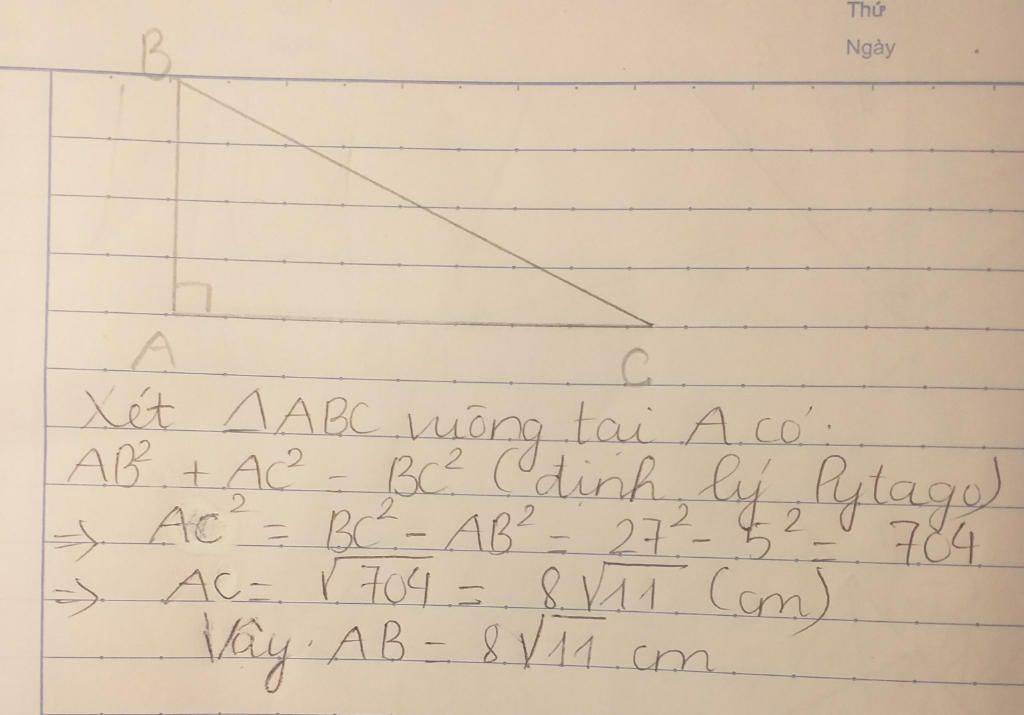 Thứ
Ngày
B
A
C
Xét ΔABC vuông tại A có:
AB² + AC² = BC² (định lý Pytago)
=> AC² = BC² - AB² = 27² - 5² = 704
=> AC = √704 = 8√11 (cm)
Vậy AB = 8√11 cm